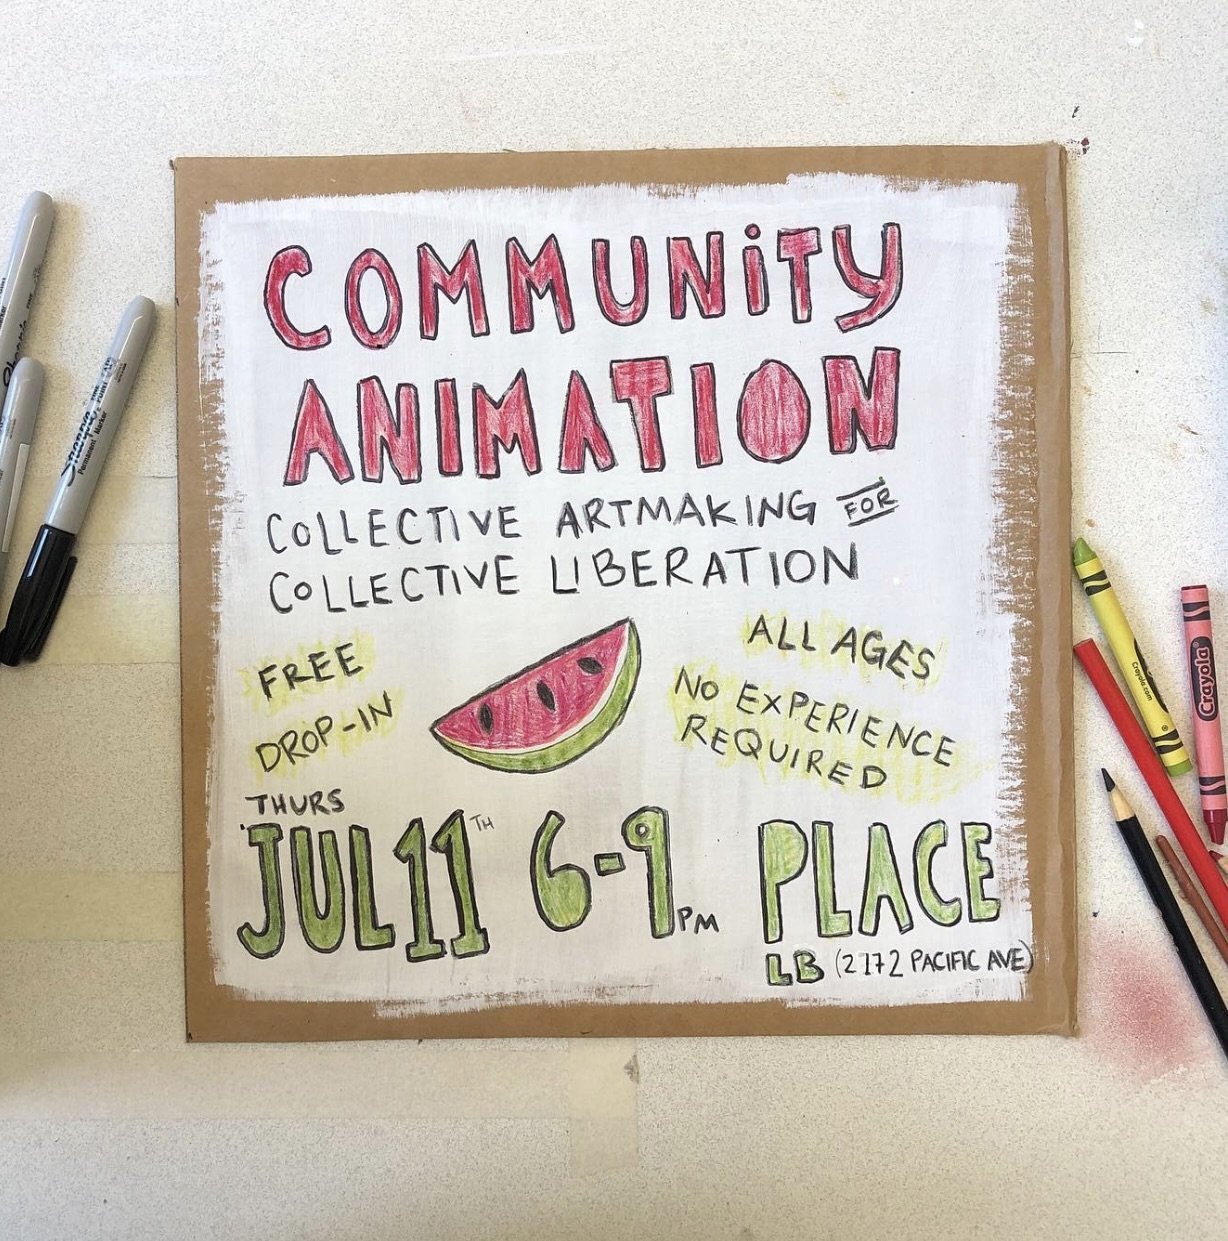 COMMUNiTY
ANIMATION
COLLECTIVE ARTMAKING FOR
COLLECTIVE LIBERATION
FREE
DROP-IN
ALL AGES
NO EXPERIENCE
REQUIRED
THURS
JUL 11TH 6-9PM
PLACE
LB (2172 PACIFIC AVE)
Sharpie
FINE POINT
Permanent Marker
Sharpie
Crayola.com
Crayola